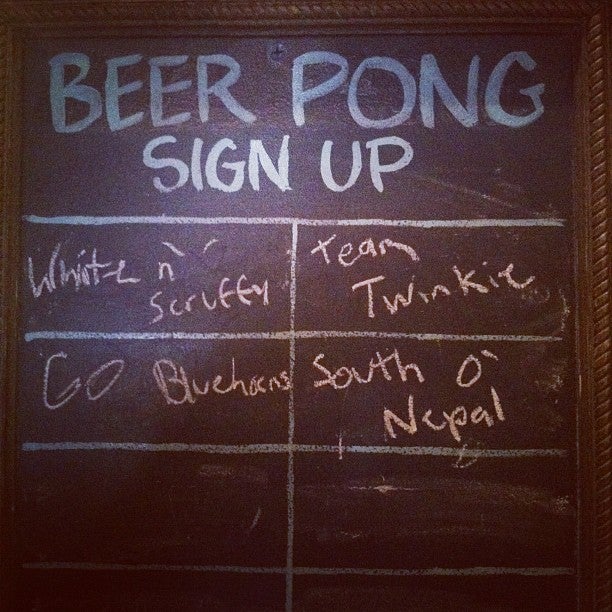 BEER PONG
SIGN UP
White n'
Scruffy
team
Twinkie
GO Bluehens
South O'
Nepal